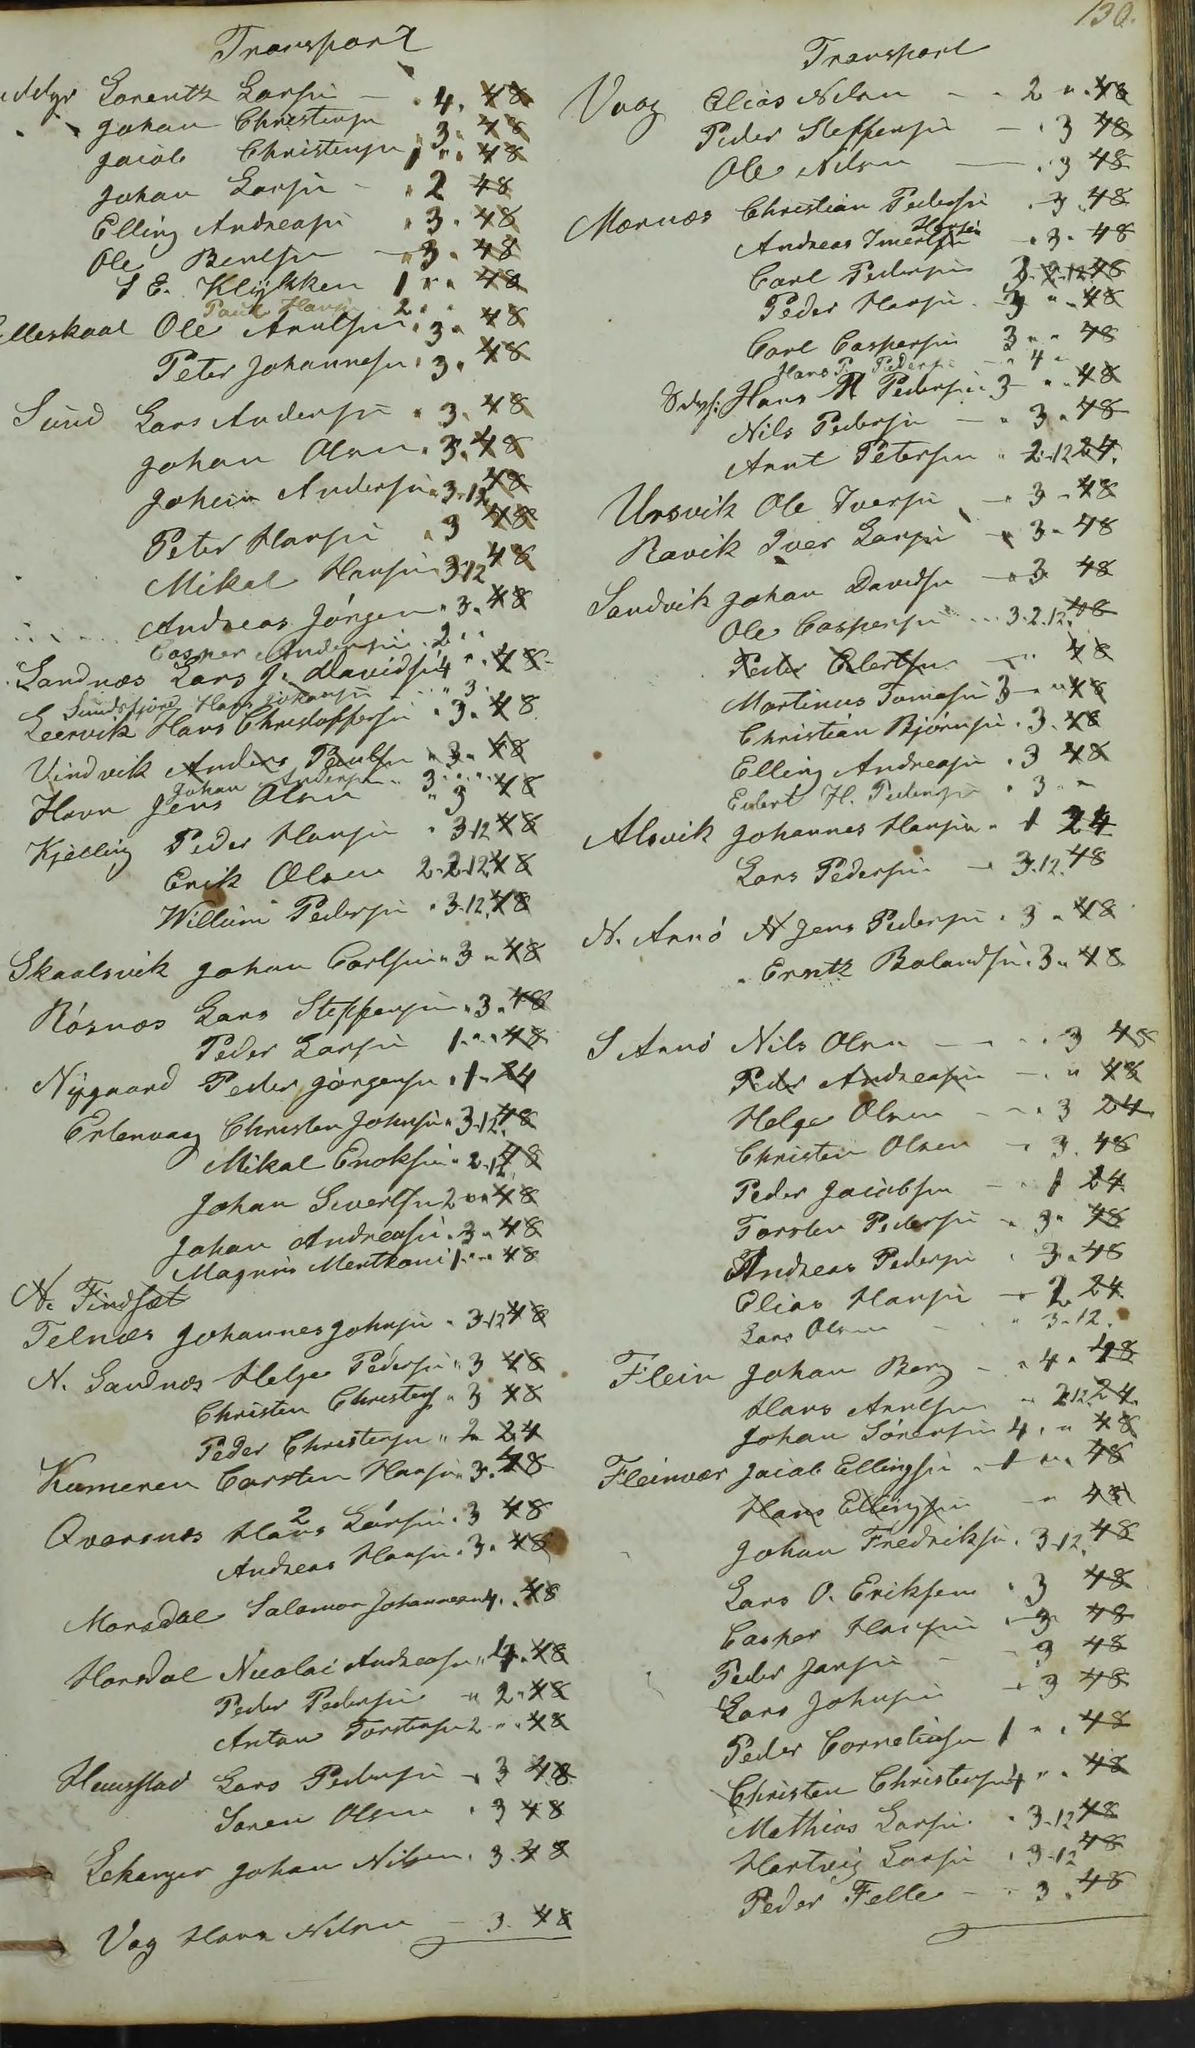 130.
Transport
Lorentz Larsen — " 4 " 48
Johan Christensen 3 " 48
Jacob Christensen 1 " " 48
Johan Larsen - " 2 48
Elling Andreasen " 3 " 48
Ole Bentsen — " 3 " 48
S E. Klykken 1 " " 48
Paul Hansen 2 " "
Elleskaal Ole Arntsen " 3 " 48
Peter Johannesen " 3 " 48
Sund Lars Andersen " 3 " 48
Johan Olsen " 3 " 48
Johan Andersen " 3 " 12 48
Peter Hansen " 3 48
Mikal Hansen 3 " 12 48
Andreas Jørgen " 3 " 48
Casper Andersen " 2 " "
Sandnæs Lars J. Davidsen 4 " " 48
Sundsfjord Hans Johansen " 3 "
Leervik Hans Christoffersen " 3 " 48
Vindvik Anders Paulsen " 3 " 48
Johan Andersen " 3 " "
Havn Jens Olsen " 3 48
Kjelling Peder Hansen " 3 " 12 48
Erik Olsen 2 " 2 " 12 48
Willum Pedersen " 3 " 12 48
Skaalsvik Johan Carlsen " 3 " 48
Røsnæs Lars Steffensen " 3 " 48
Peder Larsen 1 " " 48
Nygaard Peder Jørgensen " 1 " 24
Ertenvaag Christen Johnsen " 3 " 12 48
Mikal Enoksen " 2 " 12 48
Johan Sivertsen 2 " " 48
Johan Andreasen " 3 " 48
Magnus Mentzoni 1 " " 48
N. Findsæt
Telnæs Johannes Johnsen " 3 " 12 48
N. Sandnæs Helge Pedersen " 3 48
Christen Christens " 3 48
Peder Christensen " 2 24
Kameren Carsten Hansen " 3 " 48
Qvarsnæs Hans Larsen " 3 48
Andreas Hansen " 3 " 48
Morsdal Salamon Johannesen 4 " 48
Horsdal Nicolai Andreasen " 4 " 48
Peder Pedersen " 2 " 48
Anton Torstensen 2 " " 48
Hemstad Lars Pedersen " 3 48
Søren Olsen " 3 48
Lekanger Johan Nilsen " 3 " 48
Vag Hans Nilsen — 3 " 48
Transport
Vaag Elias Nilsen — " 2 " " 48
Peder Steffensen — " 3 48
Ole Nilsen — " 3 48
Mornæs Christian Pedersen " 3 " 48
Hansen
Andreas Imertsen " 3 " 48
Carl Pedersen 3 " 2 " 12 48
Peder Hansen " 3 " " 48
Carl Caspersen 3 " " 48
Hans P. Pedersen " 4 "
Hans H Pedersen 3 " " 48
Nils Pedersen — " 3 " 48
Arnt Petersen " 2 " 12 24
Ursvik Ole Iversen — " 3 " 48
Ravik Iver Larsen " 3 " 48
Sandvik Johan Davidsen — " 3 48
Ole Caspersen 3 " 2 " 12 48
Peder Elertsen — " 48
Martinus Tomasen 3 " " 48
Christian Bjørnsen " 3 " 48
Elling Andreasen " 3 48
Edert H. Pedersen " 3 " "
Alsvik Johannes Hansen " 1 24
Lars Pedersen — 3 " 12 48
N. Arnö Jens Pedersen " 3 " 48
Erntz Bolandsen " 3 " 48
S Arnö Nils Olsen — " 3 48
Peder Andreasen — " 48
Helge Olsen — " 3 24
Christen Olsen — 3 " 48
Peder Jacobsen — " 1 24
Torsten Pedersen " 3 " 48
Andreas Pedersen " 3 " 48
Elias Hansen — 2 24
Lars Olsen — " 3 " 12 "
Flein Johan Berg — " 4 " 48
Hans Arntsen " 2 " 12 24
Johan Sörensen 4 " " 48
Fleinvær Jacob Ellingsen " 1 " " 48
Hans Ellingsen — " 48
Johan Fredriksen " 3 " 12 48
Lars O. Eriksen " 3 48
Casper Hansen " 3 48
Peder Jansen — 3 48
Lars Johnsen — 3 48
Peder Corneliusen 1 " " 48
Christen Christensen 4 " " 48
Mathias Larsen " 3 " 12 48
Hartvig Larsen " 3 " 12 48
Peder Felle — " 3 " 48